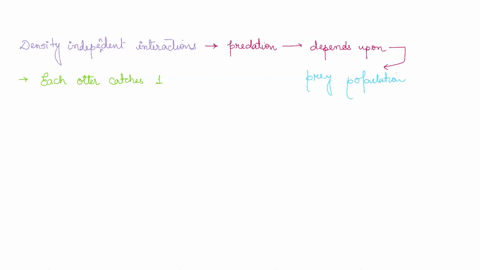 Density independent interactions → predation → depends upon
prey population
→ Each otter catches 1